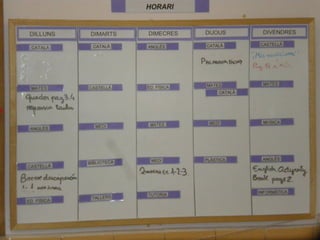 HORARI
DILLUNS
DIMARTS
DIMECRES
DIJOUS
DIVENDRES
CATALÀ
CATALÀ
ANGLÈS
CATALÀ
CASTELLÀ
MATES
CASTELLÀ
ED. FÍSICA
MATES
CATALÀ
MATES
Quadern pag 3.4
ANGLÈS
MEDI
MATES
MEDI
MÚSICA
CASTELLÀ
BIBLIOTECA
MEDI
PLÀSTICA
ANGLÈS
Quadern 1-2-3
English Activity
Book page 2
ED. FÍSICA
TALLERS
TUTORIA
INFORMÀTICA